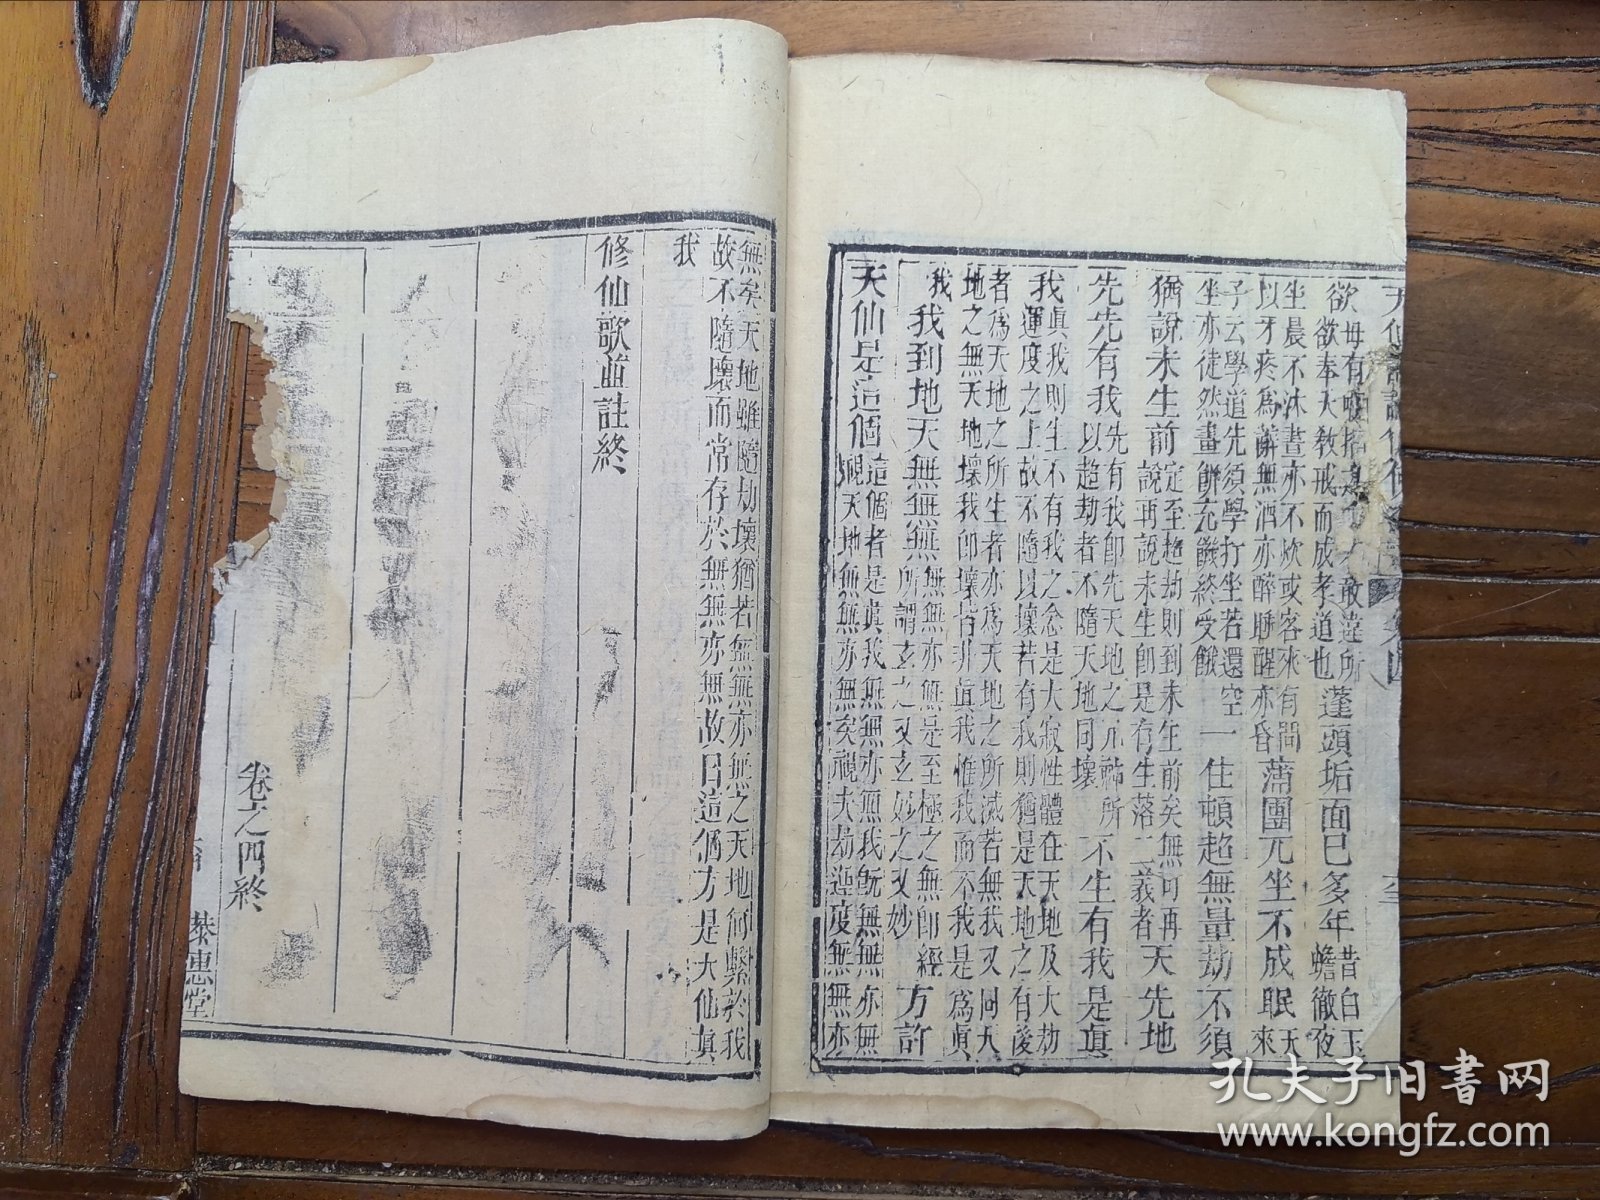 欲奉大教戒而成孝道也蓬頭垢面已多年昔白玉
蟾徹夜
坐晨不沐晝亦不炊或客來有問
以牙疼為辭無酒亦醉聯醒亦昏蒲團兀坐不成眠天來
子云學道先須學打坐若還空
坐亦徒然畫餅充饑終受餓一住頓超無量劫不須
猶說未生前定至超劫則到未生前矣無可再
說再說未生即是有生落二義者天先地
先先有我先有我即先天地之元神所
以超劫者不隨天地同壞不生有我是真
我真我則生不有我之念是大寂性體在天地及大劫
運度之上故不隨以壞若有我則猶是天地之有後
者為天地之所生者亦為天地之所滅若無我又同天
地之無天地壞我卽壞皆非真我惟我而不我是為真
我我到地天無無無無無亦無是至極之無卽經
所謂玄之又玄妙之又妙方許
天仙是這個這個者是真我無無亦無我既無無亦無
視天地無無亦無矣視大劫運度無無亦
無矣天地雖隨劫壞猶若無無亦無之天地何繫於我
故不隨壞而常存於無無亦無故曰這個方是大仙真
我
修仙歌並註終
卷之四終
恭惠堂
孔夫子旧書网
www.kongfz.com